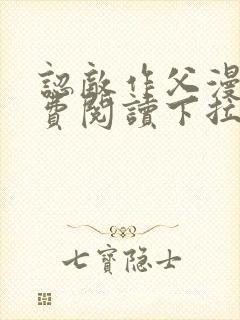 認敵作父漫
費閱讀下拉
七寶隐士